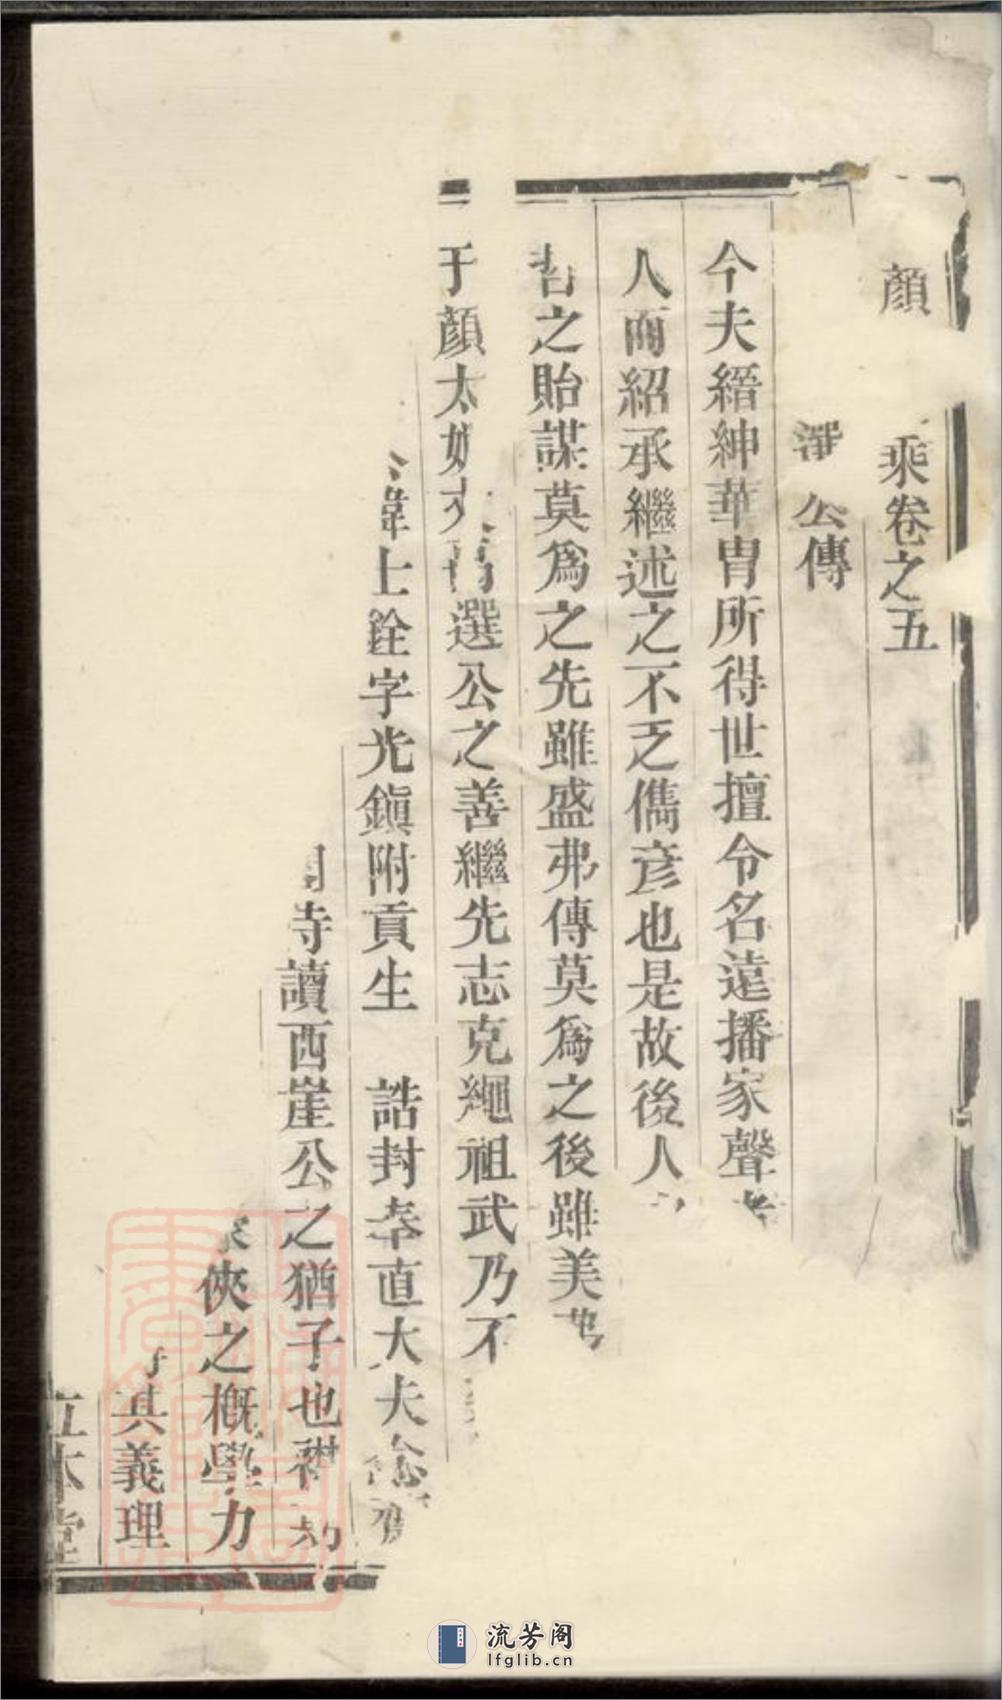 顏 乘卷之五
公傳
今夫縉紳華胄所得世擅令名遠播家聲
人而紹承繼述之不乏儁彥也是故後人
之貽謀莫爲之先雖盛弗傳莫爲之後雖美
于顏太 選公之善繼先志克繩祖武乃不
士銓字光鎭附貢生 誥封奉直大夫
寺讀西崖公之猶子也
俠之概學力
其義理
立本堂
流芳阁
lfglib.cn